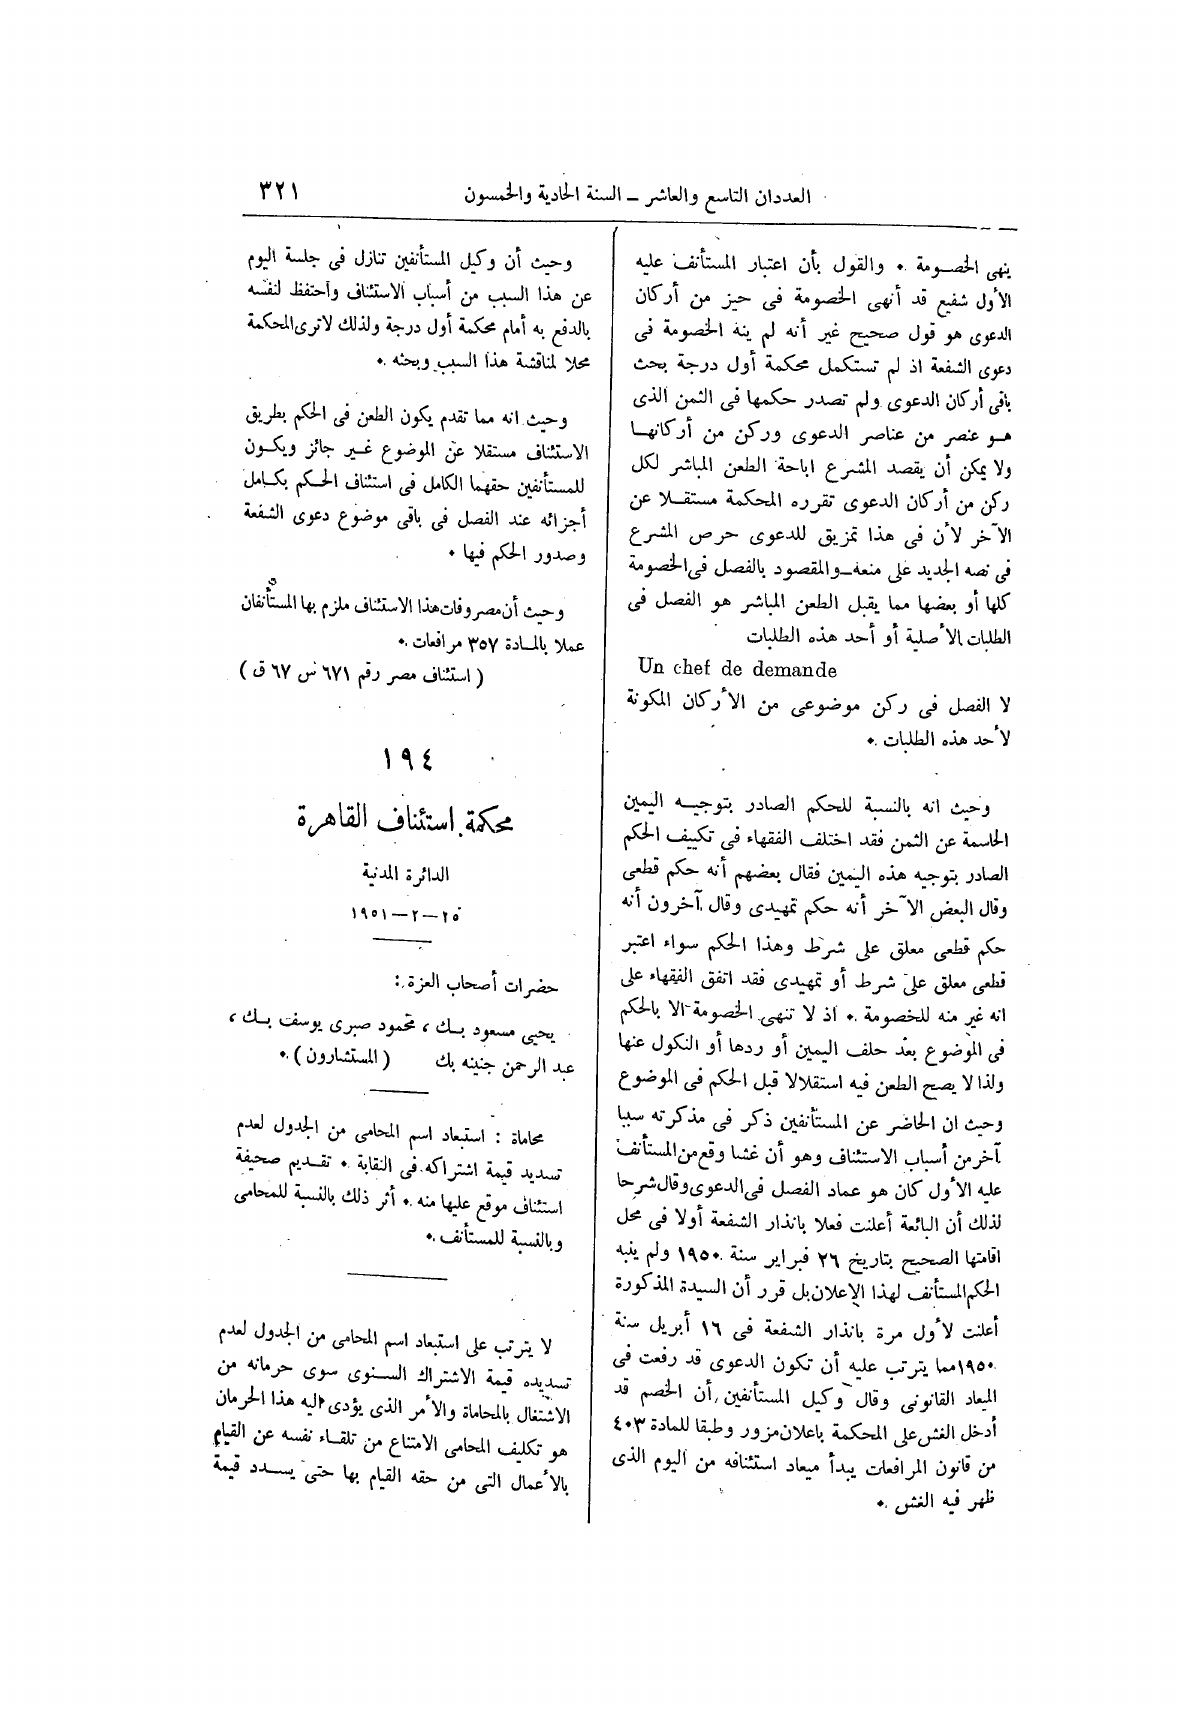 العددان التاسع والعاشر – السنة الحادية والخمسون
٣٢١
ينهى الخصومة . والقول بأن اعتبار المستأنف عليه
الأول شفيع قد أنهى الخصومة فى حيز من أركان
الدعوى هو قول صحيح غير أنه لم ينه الخصومة فى
دعوى الشفعة اذ لم تستكمل محكمة أول درجة بحث
باقى أركان الدعوى ولم تصدر حكمها فى الثمن الذى
هو عنصر من عناصر الدعوى وركن من أركانها
ولا يمكن أن يقصد المشرع اباحة الطعن المباشر لكل
ركن من أركان الدعوى تقرره المحكمة مستقلا عن
الآخر لأن فى هذا تمزيق للدعوى حرص المشرع
فى نصه الجديد على منعه والمقصود بالفصل فى الخصومة
كلها أو بعضها مما يقبل الطعن المباشر هو الفصل فى
الطلبات الأصلية أو أحد هذه الطلبات
Un chef de demande
لا الفصل فى ركن موضوعى من الأركان المكونة
لأحد هذه الطلبات .
وحيث انه بالنسبة للحكم الصادر بتوجيه اليمين
الحاسمة عن الثمن فقد اختلف الفقهاء فى تكييف الحكم
الصادر بتوجيه هذه اليمين فقال بعضهم أنه حكم قطعى
وقال البعض الآخر أنه حكم تمهيدى وقال آخرون أنه
حكم قطعى معلق على شرط وهذا الحكم سواء اعتبر
قطعى معلق على شرط أو تمهيدى فقد اتفق الفقهاء على
انه غير منه للخصومة . اذ لا تنهى الخصومة الا بالحكم
فى الموضوع بعد حلف اليمين أو ردها أو النكول عنها
ولذا لا يصح الطعن فيه استقلالا قبل الحكم فى الموضوع
وحيث ان الحاضر عن المستأنفين ذكر فى مذكرته سببا
آخر من أسباب الاستئناف وهو أن غشا وقع من المستأنف
عليه الأول كان هو عماد الفصل فى الدعوى وقال شرحا
لذلك أن البائعة أعلنت فعلا بانذار الشفعة أولا فى محل
اقامتها الصحيح بتاريخ ٢٦ فبراير سنة ١٩٥٠ ولم ينبه
الحكم المستأنف لهذا الاعلان بل قرر أن السيدة المذكورة
أعلنت لأول مرة بانذار الشفعة فى ١٦ أبريل سنة
١٩٥٠ مما يترتب عليه أن تكون الدعوى قد رفعت فى
الميعاد القانونى وقال وكيل المستأنفين أن الخصم قد
أدخل الغش على المحكمة باعلان مزور وطبقا للمادة ٤٠٣
من قانون المرافعات يبدأ ميعاد استئنافه من اليوم الذى
ظهر فيه الغش .
وحيث أن وكيل المستأنفين تنازل فى جلسة اليوم
عن هذا السبب من أسباب الاستئناف واحتفظ لنفسه
بالدفع به أمام محكمة أول درجة ولذلك لا ترى المحكمة
محلا لمناقشة هذا السبب وبحثه .
وحيث انه مما تقدم يكون الطعن فى الحكم بطريق
الاستئناف مستقلا عن الموضوع غير جائز ويكون
للمستأنفين حقهما الكامل فى استئناف الحكم بكامل
أجزائه عند الفصل فى باقى موضوع دعوى الشفعة
وصدور الحكم فيها .
وحيث أن مصروفات هذا الاستئناف ملزم بها المستأنفان
عملا بالمادة ٣٥٧ مرافعات .
( استئناف مصر رقم ٦٧١ س ٦٧ ق )
١٩٤
محكمة استئناف القاهرة
الدائرة المدنية
٢٥ – ٢ – ١٩٥١
حضرات أصحاب العزة :
يحيى مسعود بك ، محمود صبرى يوسف بك ،
عبد الرحمن جنينه بك ( المستشارون ) .
محاماة : استبعاد اسم المحامى من الجدول لعدم
تسديد قيمة اشتراكه فى النقابة . تقديم صحيفة
استئناف موقع عليها منه . أثر ذلك بالنسبة للمحامى
وبالنسبة للمستأنف .
لا يترتب على استبعاد اسم المحامى من الجدول لعدم
تسديده قيمة الاشتراك السنوى سوى حرمانه من
الاشتغال بالمحاماة والأمر الذى يؤدى اليه هذا الحرمان
هو تكليف المحامى الامتناع من تلقاء نفسه عن القيام
بالأعمال التى من حقه القيام بها حتى يسدد قيمة